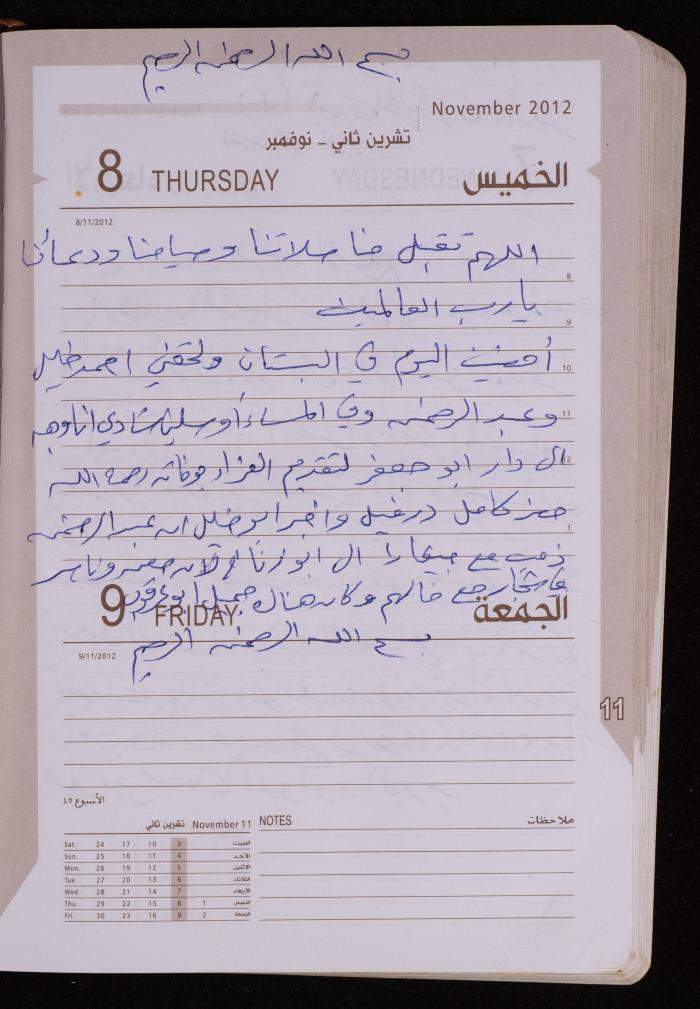 بسم الله الرحمن الرحيم
November 2012
تشرين ثاني - نوفمبر
8 THURSDAY الخميس
8/11/2012
اللهم تقبل منا صلاتنا وصيامنا ودعائنا
8
يارب العالمين
9
أمضيت اليوم في البستان ولحقني احمد خليل
10
وعبد الرحمن وفي المساء شادي انا وهو
11
الى دار ابو جعفر لتقديم العزاء بوفاة رحمه الله
12
كامل واخبر ابو خليل ان عبد الرحمن
1
ذهب مع ال ابو
خالهم وكان هناك جميل ابو
9 FRIDAY الجمعة
بسم الله الرحمن الرحيم
9/11/2012
11
الأسبوع ٤٥
November 11 تشرين ثاني
Sat. 24 17 10 3 السبت
Sun. 25 18 11 4 الأحد
Mon. 26 19 12 5 الإثنين
Tue. 27 20 13 6 الثلاثاء
Wed. 28 21 14 7 الأربعاء
Thu. 29 22 15 8 1 الخميس
Fri. 30 23 16 9 2 الجمعة
NOTES ملاحظات